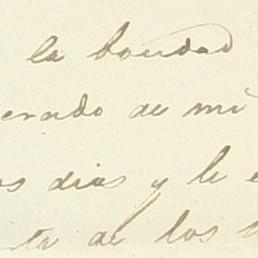 la bondad
erado de mi
os dias y le e
nte de los